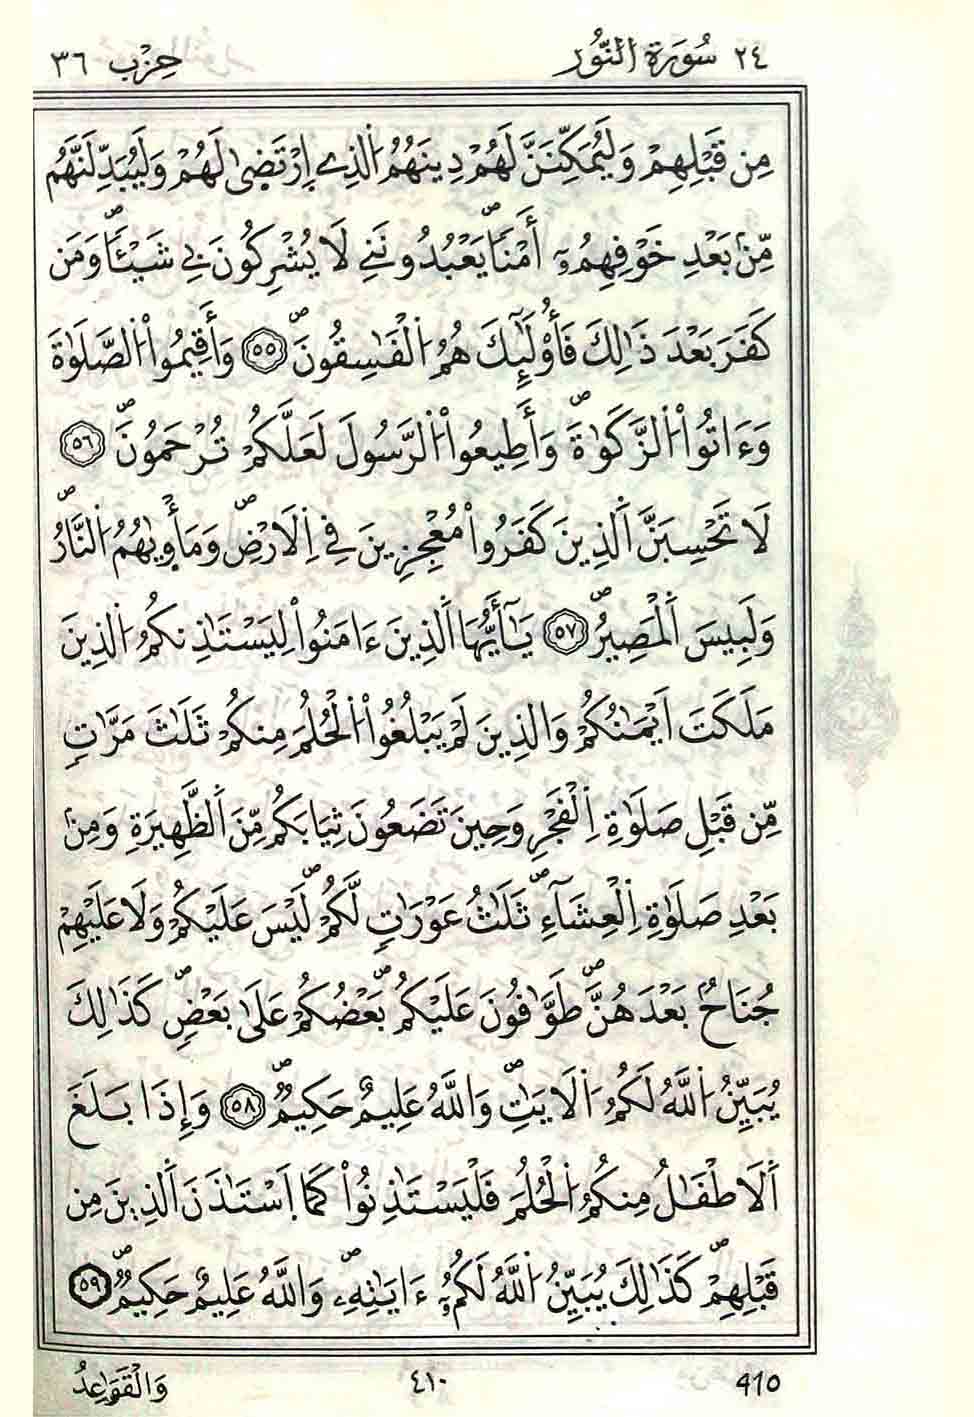 ٢٤ سُورَةُ النُّور حِزْب ٣٦
مِن قَبْلِهِمْ وَلَيُمَكِّنَنَّ لَهُمْ دِينَهُمُ اُ۬لذِے اِ۪رْتَض۪ىٰ لَهُمْ وَلَيُبَدِّلَنَّهُم
مِّنۢ بَعْدِ خَوْفِهِمُۥٓ أَمْناٗۖ يَعْبُدُونَنِے لَا يُشْرِكُونَ بِے شَيْـٔاٗۖ وَمَن
كَفَرَ بَعْدَ ذَٰلِكَ فَأُوْلَٰٓئِكَ هُمُ اُ۬لْفَٰسِقُونَۖ ٥٥ وَأَقِيمُواْ اُ۬لصَّلَوٰةَ
وَءَاتُواْ اُ۬لزَّكَوٰةَۖ وَأَطِيعُواْ اُ۬لرَّسُولَ لَعَلَّكُمْ تُرْحَمُونَۖ ٥٦
لَا تَحْسِبَنَّ اَ۬لذِينَ كَفَرُواْ مُعْجِزِينَ فِے اِ۬لَارْضِۖ وَمَأْو۪يٰهُمُ اُ۬لنَّارُۖ
وَلَبِيسَ اَ۬لْمَصِيرُۖ ٥٧ يَٰٓأَيُّهَا اَ۬لذِينَ ءَامَنُواْ لِيَسْتَٰذِنكُمُ اُ۬لذِينَ
مَلَكَتَ اَيْمَٰنُكُمْ وَالذِينَ لَمْ يَبْلُغُواْ اُ۬لْحُلُمَ مِنكُمْ ثَلَٰثَ مَرَّٰتٖ
مِّن قَبْلِ صَلَوٰةِ اِ۬لْفَجْرِ وَحِينَ تَضَعُونَ ثِيَابَكُم مِّنَ اَ۬لظَّهِيرَةِ وَمِنۢ
بَعْدِ صَلَوٰةِ اِ۬لْعِشَآءِۖ ثَلَٰثُ عَوْرَٰتٖ لَّكُمْۖ لَيْسَ عَلَيْكُمْ وَلَا عَلَيْهِمْ
جُنَاحُۢ بَعْدَهُنَّۖ طَوَّٰفُونَ عَلَيْكُمۖ بَعْضُكُمْ عَلَىٰ بَعْضٖۖ كَذَٰلِكَ
يُبَيِّنُ اُ۬للَّهُ لَكُمُ اُ۬لَايَٰتِۖ وَاللَّهُ عَلِيمٌ حَكِيمٞۖ ٥٨ وَإِذَا بَلَغَ
اَ۬لَاطْفَٰلُ مِنكُمُ اُ۬لْحُلُمَ فَلْيَسْتَٰذِنُواْ كَمَا اَ۪سْتَٰذَنَ اَ۬لذِينَ مِن
قَبْلِهِمْۖ كَذَٰلِكَ يُبَيِّنُ اُ۬للَّهُ لَكُمُۥٓ ءَايَٰتِهِۦۖ وَاللَّهُ عَلِيمٌ حَكِيمٞۖ ٥٩
وَالْقَوَٰعِدُ ٤١٠ 410